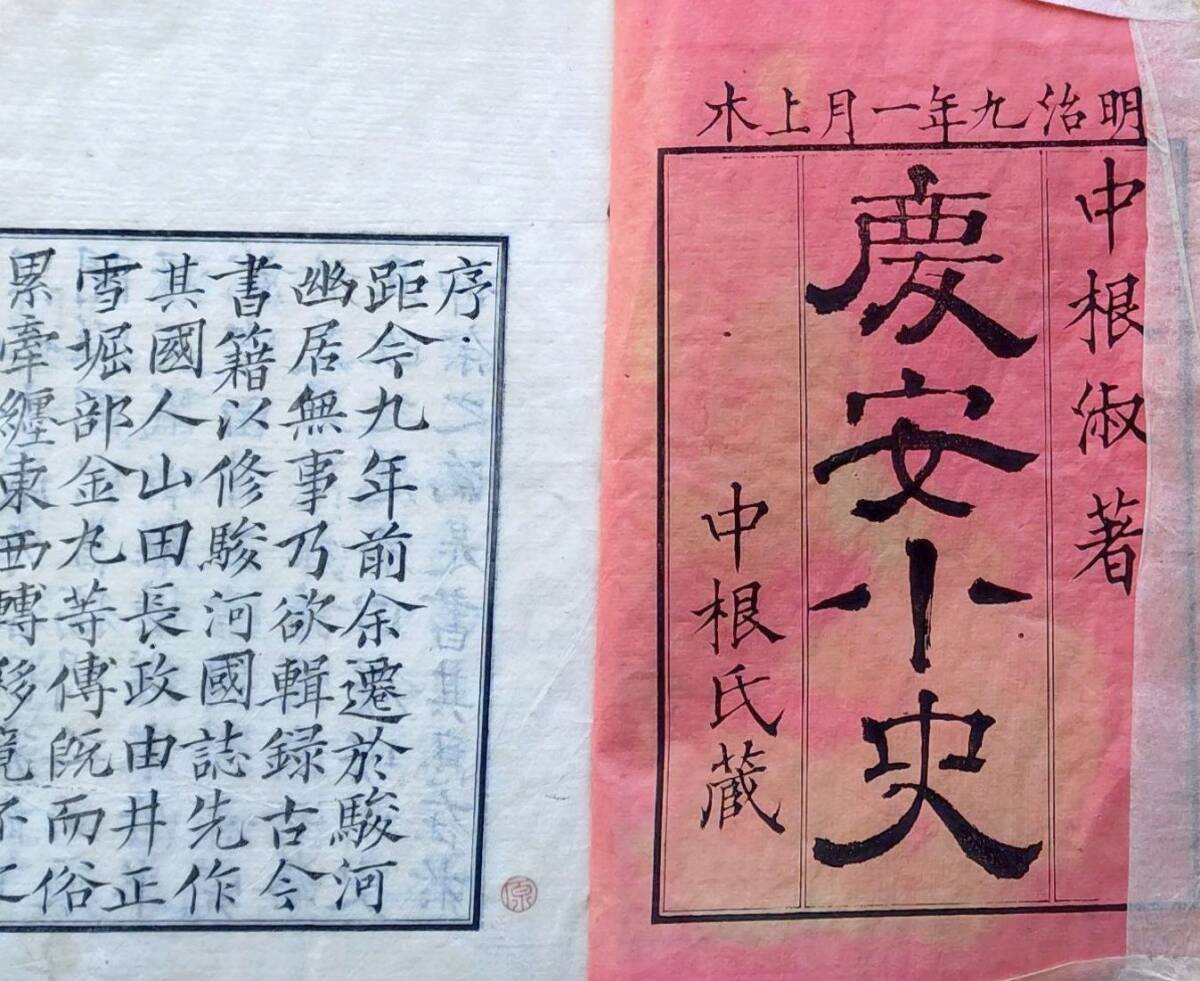 明治九年一月上木
中根淑著
慶安小史
中根氏蔵
序
距今九年前余遷於駿河
幽居無事乃欲輯録古今
書籍以修駿河國誌先作
其國人山田長政由井正
雪堀部金丸等傳既而俗
累牽纏東西轉移竟不